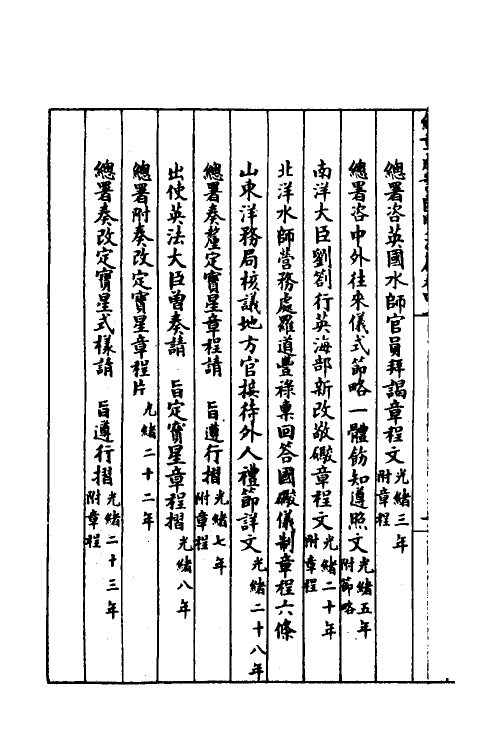 總署咨英國水師官員拜謁章程文光緒三年附章程
總署咨中外往來儀式節略一體飭知遵照文光緒五年附節略
南洋大臣劉劄行英海部新改敬礮章程文光緒二十年附章程
北洋水師營務處羅道豐祿稟回答國礮儀制章程六條
山東洋務局核議地方官接待外人禮節詳文光緒二十八年
總署奏釐定寶星章程請 旨遵行摺光緒七年附章程
出使英法大臣曾奏請 旨定寶星章程摺光緒八年
總署附奏改定寶星章程片光緒二十二年
總署奏改定寶星式樣請 旨遵行摺光緒二十三年附章程